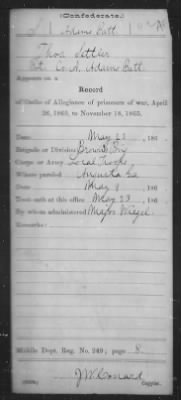 (Confederate.)
Adams Batt.
Thos. Settler
Pvt. Co. A. Adams Batt.
Appears on a
Record
of Oaths of Allegiance of prisoners of war, April
26, 1865, to November 18, 1865.
Date May 23, 186
Brigade or Division Brown's Div
Corps or Army Local Troops,
Where paroled Augusta Ga
Date May 9, 186
Took oath at this office May 23, 186
By whom administered Major Wiegel
Remarks:
Middle Dept. Reg. No. 249; page 8.
J W Conard
Copyist.